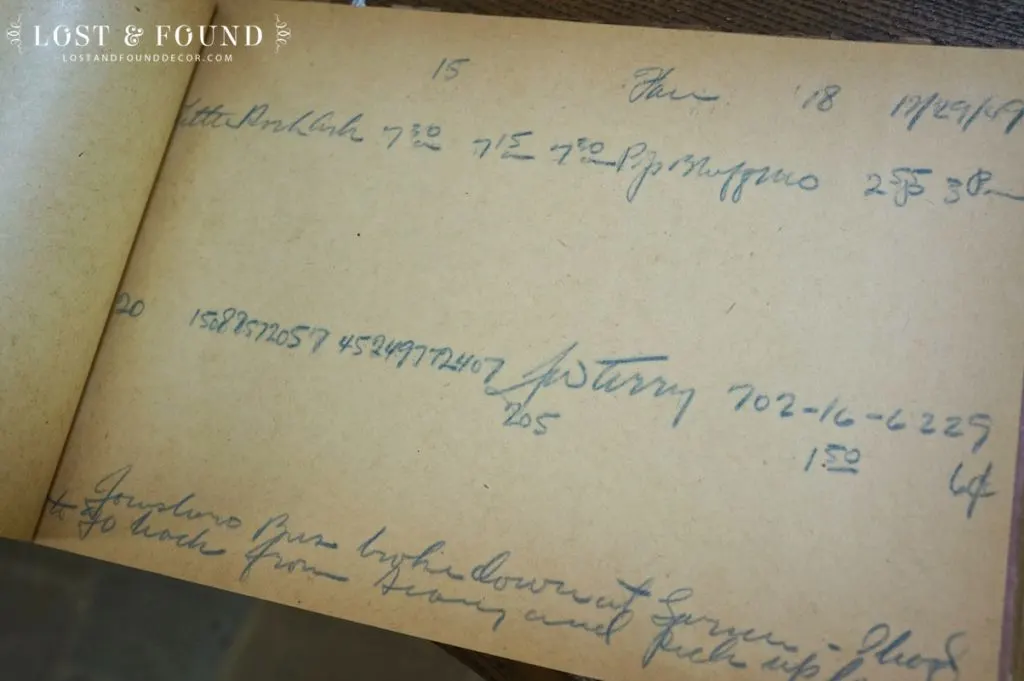 LOST & FOUND
LOSTANDFOUNDDECOR.COM
15 18 12/29/49
Little Rock Ark 7 30 7 15 7 30 Pop Bluff Mo 2 55 3 Pm
20 15088572057 45249772407 JW Terry 702-16-6229
205 1.50 6¢
Jonesboro Bus broke down at - I had
to go back from and pick up